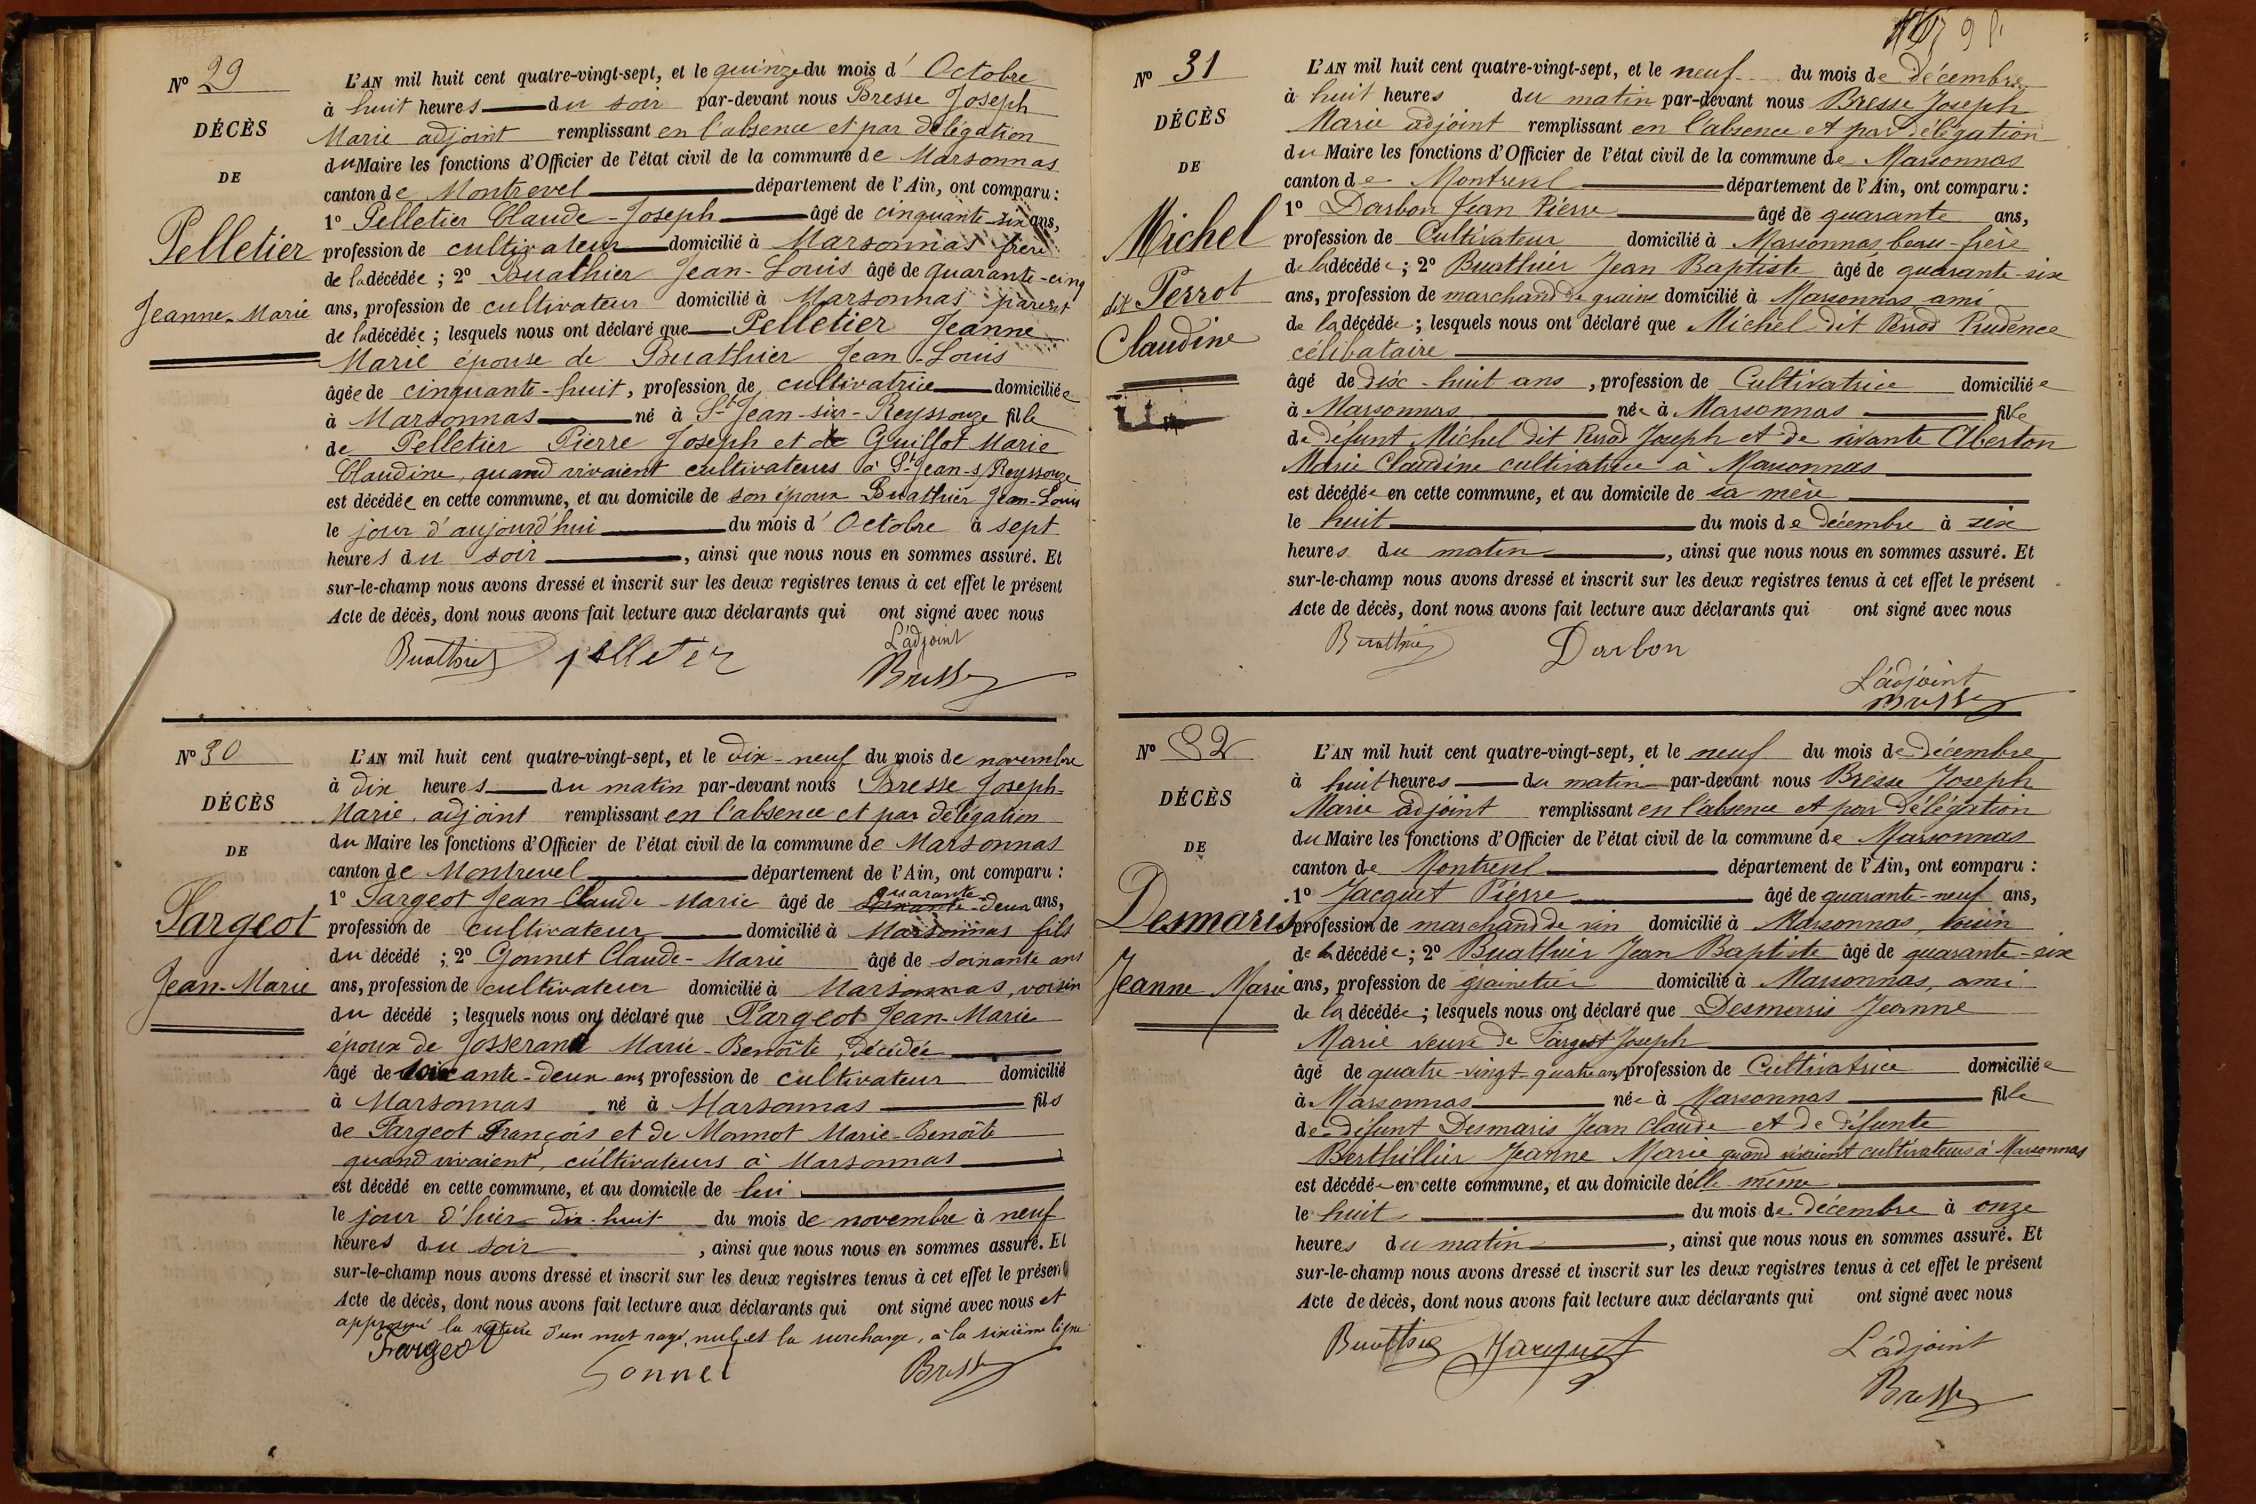 Nº 29
DÉCÈS
DE
Pelletier
Jeanne-Marie
L'AN mil huit cent quatre-vingt-sept, et le quinze du mois d' Octobre
à huit heures du soir par-devant nous Bresse Joseph
Marie adjoint remplissant en l'absence et par délégation
du Maire les fonctions d'Officier de l'état civil de la commune de Marsonnas
canton de Montrevel département de l'Ain, ont comparu :
1º Pelletier Claude-Joseph âgé de cinquante-six ans,
profession de cultivateur domicilié à Marsonnas frère
de la décédée ; 2º Buathier Jean-Louis âgé de quarante-cinq
ans, profession de cultivateur domicilié à Marsonnas parent
de la décédée ; lesquels nous ont déclaré que Pelletier Jeanne
Marie épouse de Buathier Jean-Louis
âgée de cinquante-huit, profession de cultivatrice domiciliée
à Marsonnas né à St Jean-sur-Reyssouze fille
de Pelletier Pierre Joseph et de Guillot Marie
Claudine, quand vivaient cultivateurs à St-Jean-s/Reyssouze
est décédée en cette commune, et au domicile de son époux Buathier Jean-Louis
le jour d'aujourd'hui du mois d' Octobre à sept
heures du soir, ainsi que nous nous en sommes assuré. Et
sur-le-champ nous avons dressé et inscrit sur les deux registres tenus à cet effet le présent
Acte de décès, dont nous avons fait lecture aux déclarants qui ont signé avec nous
L'adjoint
Buathier pelletier Bresse
Nº 30
DÉCÈS
DE
Fargeot
Jean-Marie
L'AN mil huit cent quatre-vingt-sept, et le dix-neuf du mois de novembre
à dix heures du matin par-devant nous Bresse Joseph-
Marie, adjoint remplissant en l'absence et par délégation
du Maire les fonctions d'Officier de l'état civil de la commune de Marsonnas
canton de Montrevel département de l'Ain, ont comparu :
1º Fargeot Jean-Claude-Marie âgé de soixante quarante-deux ans,
profession de cultivateur domicilié à Marsonnas fils
du décédé ; 2º Gonnet Claude-Marie âgé de soixante ans
ans, profession de cultivateur domicilié à Marsonnas, voisin
du décédé ; lesquels nous ont déclaré que Fargeot Jean-Marie
époux de Josserand Marie-Benoîte, décédée
âgé de soixante-deux ans profession de cultivateur domicilié
à Marsonnas né à Marsonnas fils
de Fargeot François et de Monnot Marie-Benoîte
quand vivaient, cultivateurs à Marsonnas
est décédé en cette commune, et au domicile de lui
le jour d'hier dix-huit du mois de novembre à neuf
heures du soir, ainsi que nous nous en sommes assuré. Et
sur-le-champ nous avons dressé et inscrit sur les deux registres tenus à cet effet le présent
Acte de décès, dont nous avons fait lecture aux déclarants qui ont signé avec nous et
approuvé la rature d'un mot rayé nul, et la surcharge, à la sixième ligne
Fargeot Gonnet Bresse
98
Nº 31
DÉCÈS
DE
Michel
dit Perrot
Claudine
L'AN mil huit cent quatre-vingt-sept, et le neuf du mois de décembre
à huit heures du matin par-devant nous Bresse Joseph
Marie adjoint remplissant en l'absence et par délégation
du Maire les fonctions d'Officier de l'état civil de la commune de Marsonnas
canton de Montrevel département de l'Ain, ont comparu :
1º Darbon Jean Pierre âgé de quarante ans,
profession de Cultivateur domicilié à Marsonnas beau-frère
de la décédée ; 2º Buathier Jean Baptiste âgé de quarante-six
ans, profession de marchand de grains domicilié à Marsonnas ami
de la décédée ; lesquels nous ont déclaré que Michel dit Perrod Prudence
célibataire
âgé de dix-huit ans, profession de Cultivatrice domiciliée
à Marsonnas née à Marsonnas fille
de défunt Michel dit Perrod Joseph et de vivante Aberton
Marie Claudine cultivatrice à Marsonnas
est décédée en cette commune, et au domicile de sa mère
le huit du mois de décembre à six
heures du matin, ainsi que nous nous en sommes assuré. Et
sur-le-champ nous avons dressé et inscrit sur les deux registres tenus à cet effet le présent
Acte de décès, dont nous avons fait lecture aux déclarants qui ont signé avec nous
Buathier Darbon
L'adjoint
Bresse
Nº 32
DÉCÈS
DE
Desmaris
Jeanne Marie
L'AN mil huit cent quatre-vingt-sept, et le neuf du mois de décembre
à huit heures du matin par-devant nous Bresse Joseph
Marie adjoint remplissant en l'absence et par délégation
du Maire les fonctions d'Officier de l'état civil de la commune de Marsonnas
canton de Montrevel département de l'Ain, ont comparu :
1º Jacquet Pierre âgé de quarante-neuf ans,
profession de marchand de vin domicilié à Marsonnas, voisin
de la décédée ; 2º Buathier Jean Baptiste âgé de quarante-six
ans, profession de grainetier domicilié à Marsonnas, ami
de la décédée ; lesquels nous ont déclaré que Desmaris Jeanne
Marie veuve de Fargeot Joseph
âgé de quatre-vingt-quatre ans profession de Cultivatrice domiciliée
à Marsonnas née à Marsonnas fille
de défunt Desmaris Jean Claude et de défunte
Berthillier Jeanne Marie quand vivaient cultivateurs à Marsonnas
est décédée en cette commune, et au domicile d'elle-même
le huit du mois de décembre à onze
heures du matin, ainsi que nous nous en sommes assuré. Et
sur-le-champ nous avons dressé et inscrit sur les deux registres tenus à cet effet le présent
Acte de décès, dont nous avons fait lecture aux déclarants qui ont signé avec nous
Buathier Jacquet L'adjoint
Bresse